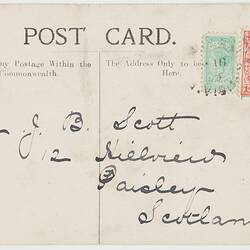 POST CARD.
ny Postage Within the
Commonwealth.
The Address Only to be
Here.
J. B. Scott
12 Hillview
Paisley
Scotlan